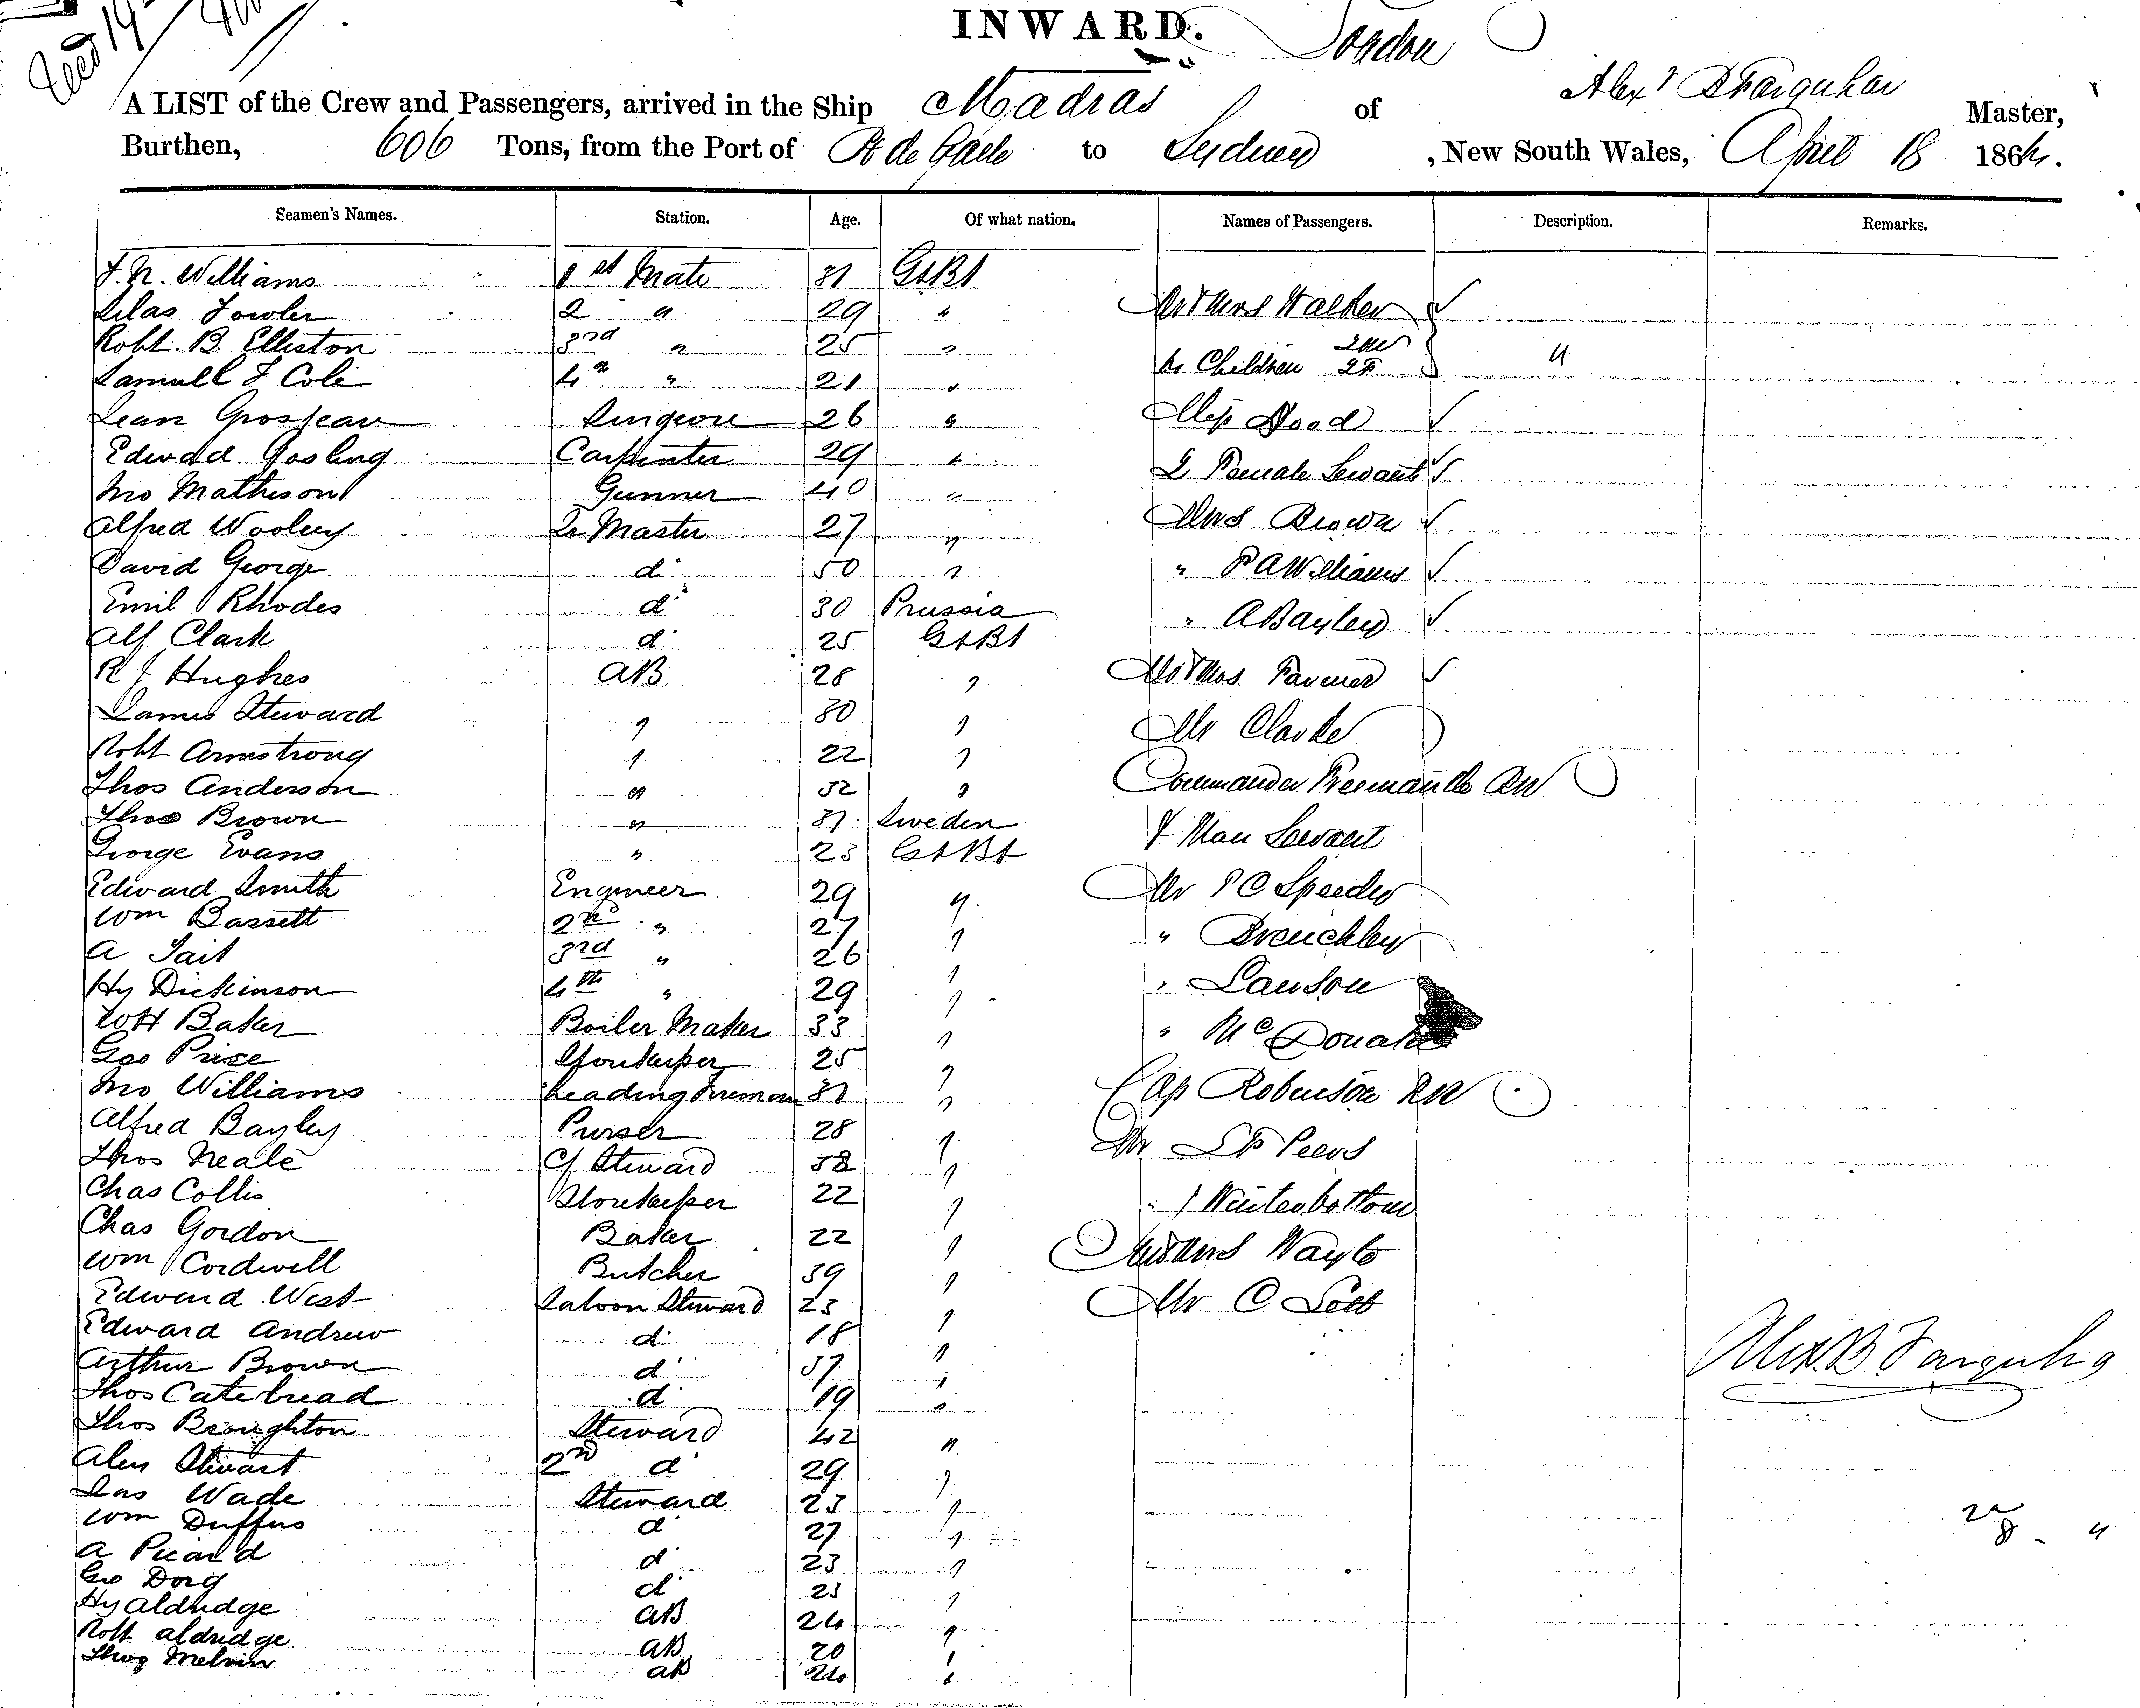 INWARD.
London
A LIST of the Crew and Passengers, arrived in the Ship Madras of Alexr B Farquhar Master,
Burthen, 606 Tons, from the Port of Pt de Galle to Sydney, New South Wales, April 18 1864.
Seamen's Names. Station. Age. Of what nation. Names of Passengers. Description. Remarks.
J. R. Williams 1st Mate 31 Gt Bt
Silas Fowler 2 " 29 " Mr & Mrs Walker
Robt. B Elliston 3rd " 25 "
Samuell F Cole 4th " 21 " 4 Children 2M 2F 4
Jean Grosjean Surgeon 26 " Miss Hood
Edward Gosling Carpenter 29 " 2 Female Servants
Jno Matheson Gunner 40 "
Alfred Wooley Qr Master 27 " Mrs Brown
David George do 50 " " P A Williams
Emil Rhodes do 30 Prussia
Alf Clark do 25 Gt Bt " A Bayley
R J Hughes AB 28 " Mr & Mrs Farmer
James Steward " 30 " Mr Clarke
Robt Armstrong " 22 "
Thos Anderson " 32 " Commander Freemantle RN
Thos Brown " 31 Sweden & Man Servant
George Evans " 23 Gt Bt
Edward Smith Engineer 29 " Mr
Wm Bassett 2nd " 27 " " Brenchley
A Tait 3rd " 26 "
Hy Dickinson 4th " 29 " " Lawson
W H Baker Boiler Maker 33 " " McDonald
Geo Price Storekeeper 25 "
Jno Williams Leading Fireman 31 " Cap Robinson RN
Alfred Bayley Purser 28 " Mr
Thos Neale Cf Steward 32 "
Chas Collis Storekeeper 22 " " J Winterbottom
Chas Gordon Baker 22 "
Wm Cordwell Butcher 39 " Mr & Mrs
Edward West Saloon Steward 23 " Mr C
Edward Andrew do 18 "
Arthur Brown do 37 " Alex B Farquhar
Thos Catebread do 19 "
Thos Broughton Steward 42 "
Alex Stewart 2nd do 29 "
Jas Wade Steward 23 "
Wm Duffus do 27 "
A Picard do 23 "
Geo Doig do 23 "
Hy Aldridge AB 24 "
Robt Aldridge AB 20 "
Thos Melvin AB 24 "